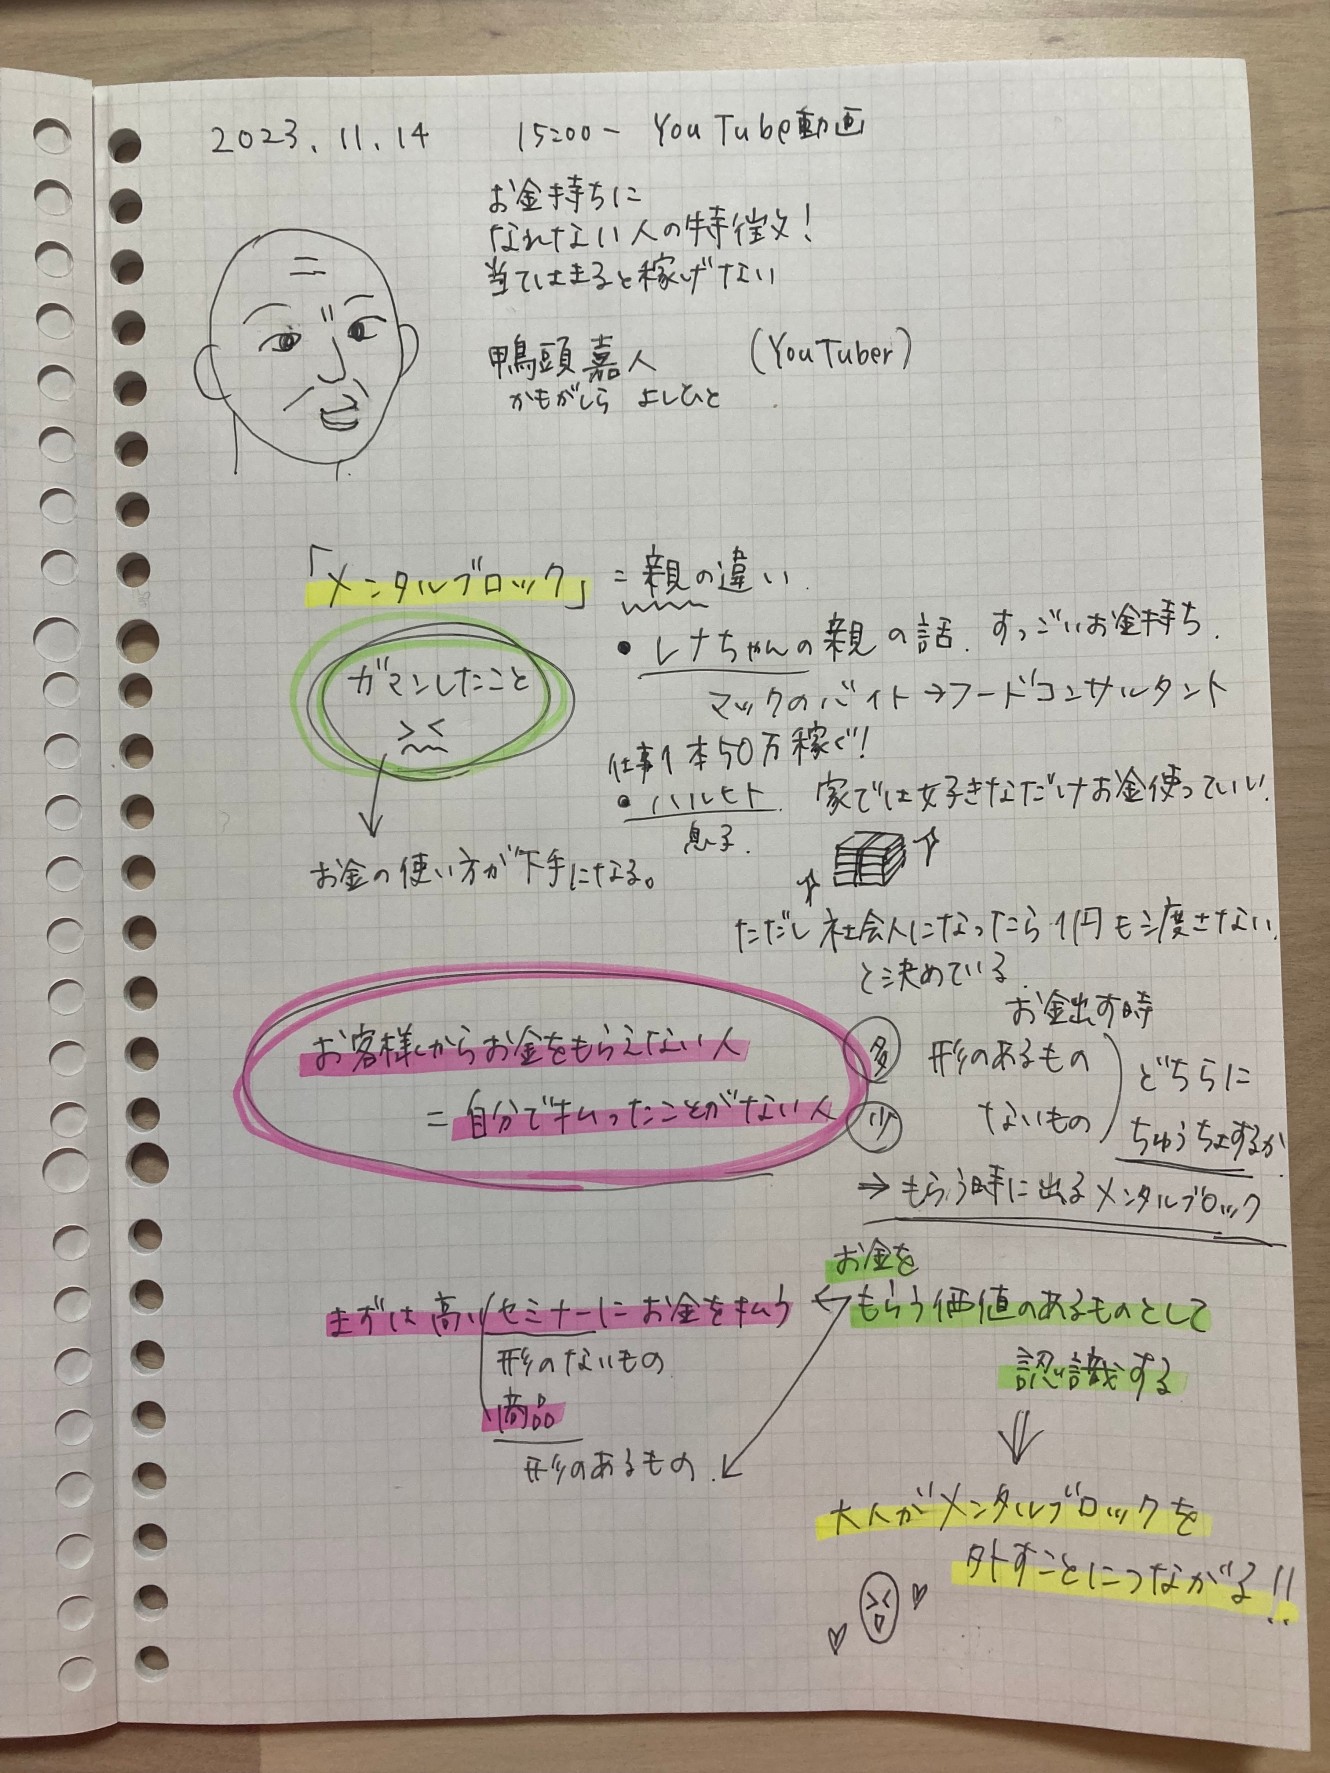 2023.11.14 15:00- YouTube動画
お金持ちに
なれない人の特徴!
当てはまると稼げない
鴨頭嘉人 (YouTuber)
かもがしら よしひと
「メンタルブロック」 = 親の違い.
ガマンしたこと
お金の使い方が下手になる。
• レナちゃんの親の話. すっごいお金持ち.
マックのバイト→フードコンサルタント
仕事1本50万稼ぐ!
• ハルヒト. 家では好きなだけお金使っていい.
息子.
ただし社会人になったら1円も渡さない.
と決めている.
お客様からお金をもらえない人
= 自分で払ったことがない人
お金出す時
多 形のあるもの
少 ないもの
どちらに
ちゅうちょするか
⇒ もらう時に出るメンタルブロック
お金を
もらう価値のあるものとして
認識する
まずは高いセミナーにお金を払う
形のないもの
商品
形のあるもの.
大人がメンタルブロックを
外すことにつながる!!